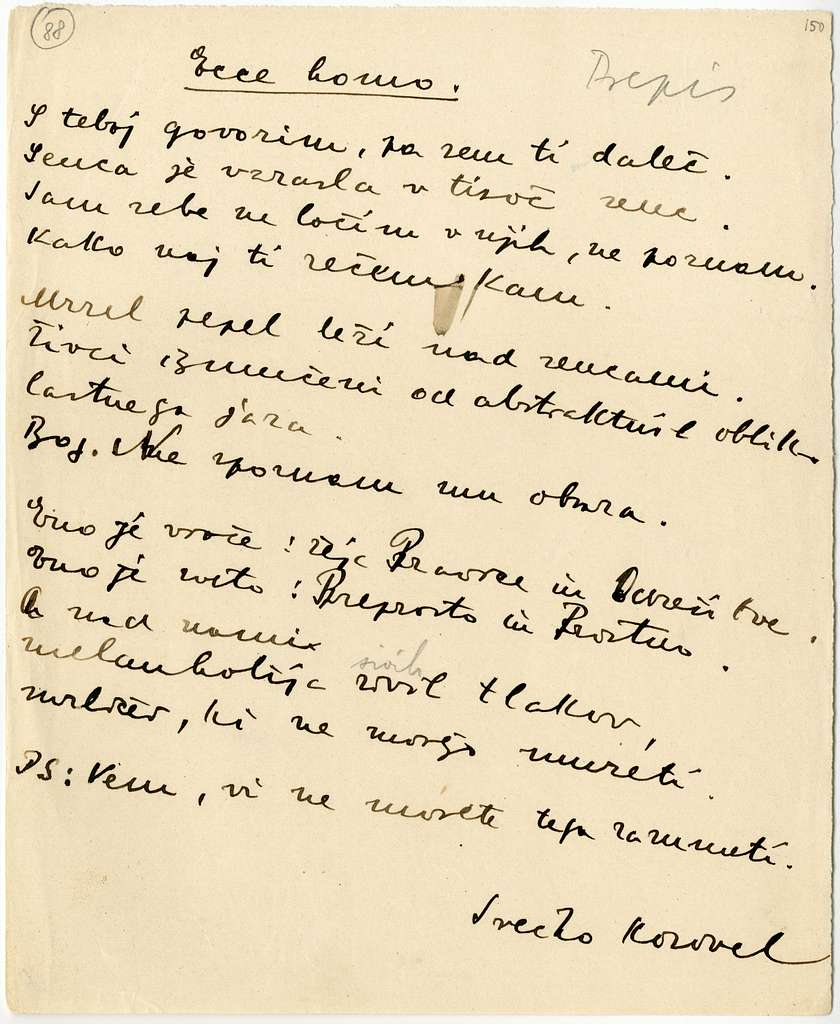 88
150
Ecce homo.
Prepis
S teboj govorim, pa sem ti daleč.
Senca je vzrasla v tisoč senc.
Sam sebe ne ločim v njih, ne poznam.
Kako naj ti rečem: Kam.
Mrzel pepel leži nad sencami.
Živci izmučeni od abstraktnih oblik
lastnega jaza.
Boj. Ne spoznam mu obraza.
Eno je vroče: žeja Pravice in Odrešitve.
Eno je sveto: Preprosto in Prostno.
A nad nami
sivih
melanholija sivih tlakov,
mrličev, ki ne morejo umreti.
PS: Vem, vi ne morete tega razumeti.
Srečko Kosovel